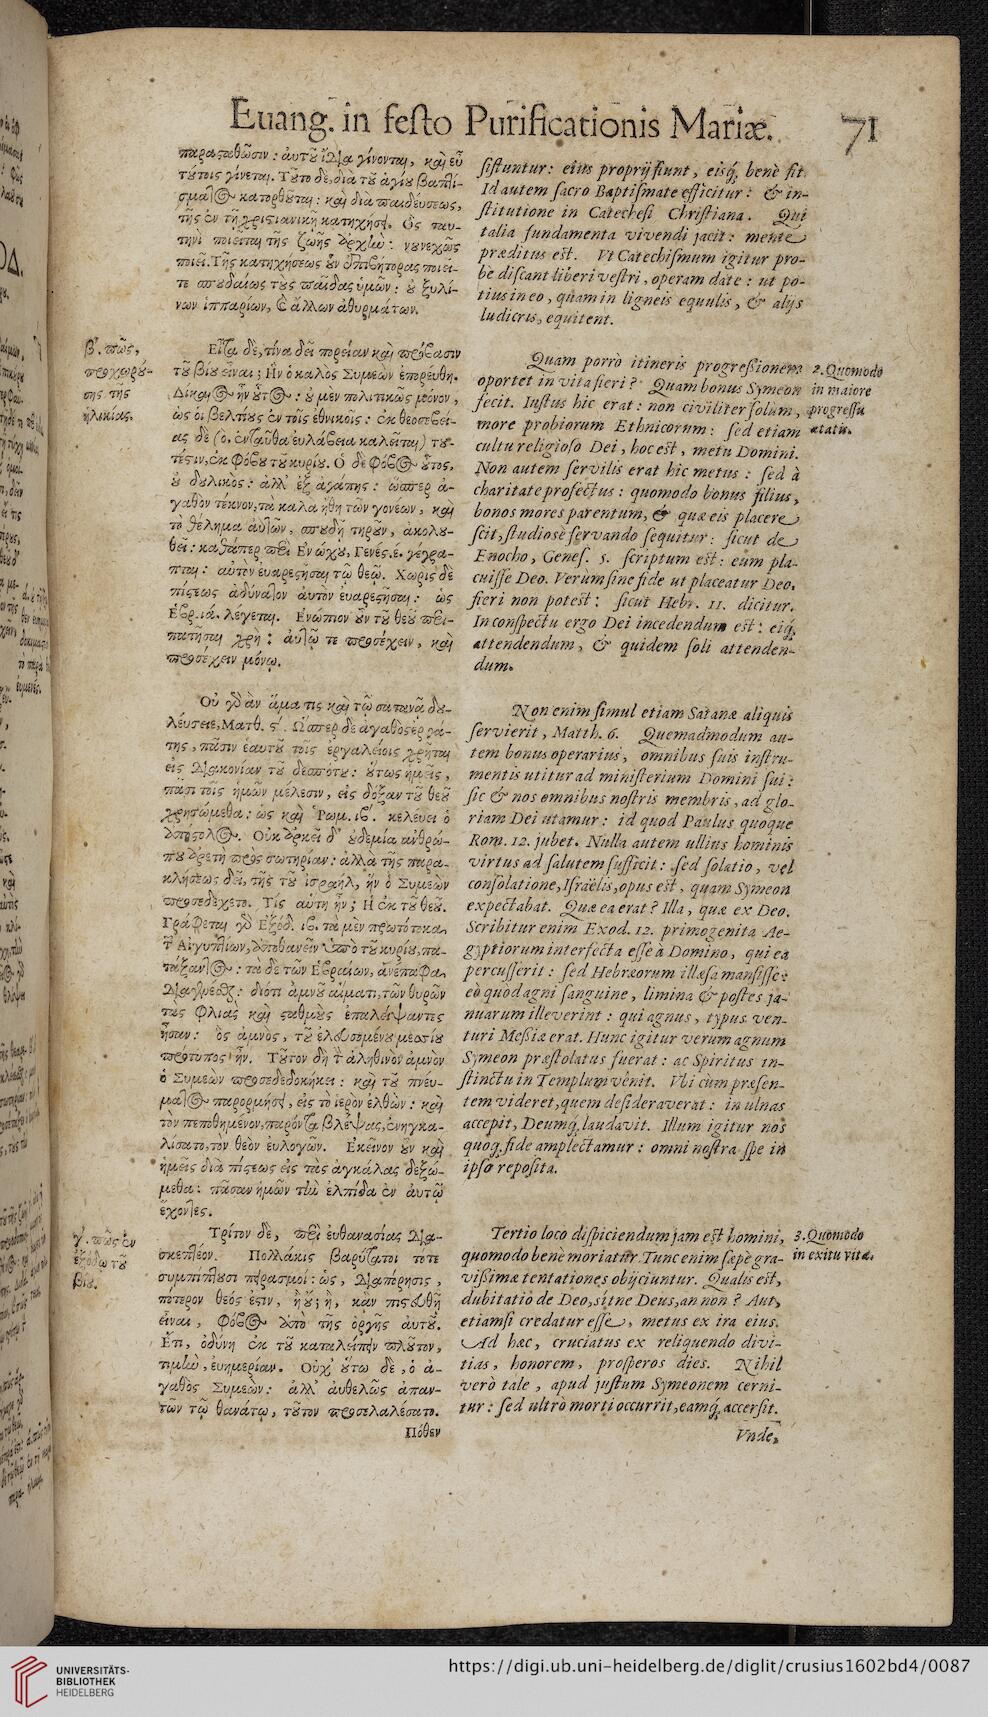 Euang. in festo Purificationis Mariæ. 71
παραςαθῶσιν: ἀυτοῦ ἴδια γίνονται, καὶ εὖ
τούτοις γίνεται. Τοῦτο δὲ, διὰ τοῦ ἁγίου βαπτί-
σματος κατορθοῦται: καὶ διὰ παιδέυσεως,
τῆς ἐν τῇ χριςιανικῇ κατηχήσει. Ὃς ταυ-
τηνὶ ποιεῖται τῆς ζωῆς ἀρχὴν: νουνεχῶς
ποιεῖ. Τῆς κατηχήσεως οὖν ἐπιβήτορας ποιεῖ-
τε σπουδαίως τοὺς παῖδας ὑμῶν: ἢ ξυλί-
νων ἱππαρίων, καὶ ἄλλων ἀθυρμάτων.
β΄. πῶς,
προχωρού-
σης τῆς
ἡλικίας.
Εἶτα δὲ, τίνα δεῖ πορείαν καὶ πρόβασιν
τοῦ βίου εἶναι; Ην ὁ καλὸς Συμεὼν ἐπορέυθη.
Δίκαιος ἦν οὗτος: οὐ μὲν πολιτικῶς μόνον,
ὡς οἱ βελτίους ἐν τοῖς ἐθνικοῖς: ἐκ θεοσεβεί-
ας δὲ (ὃ ἐνταῦθα ἐυλάβεια καλεῖται) του-
τέςιν, ἐκ φόβου τοῦ κυρίου. Ὁ δὲ φόβος οὗτος,
οὐ δουλικὸς: ἀλλ' ἐξ ἀγάπης: ὥσπερ ἀ-
γαθὸν τέκνον, τὰ καλὰ ἤθη τῶν γονέων, καὶ
τὸ θέλημα ἀυτῶν, σπουδῇ τηροῦν, ἀκολου-
θεῖ: καθάπερ περὶ Ενώχου, Γενές. ε. γέγρα-
πται: αὐτὸν ἐυαρεςῆσαι τῷ θεῷ. Χωρὶς δὲ
πίςεως ἀδύνατον ἀυτὸν ἐυαρεςῆσαι: ὡς
Εβρ. ιά. λέγεται. Ενώπιον οὖν τοῦ θεοῦ περι-
πατῆσαι χρή: ἀυτῷ τε προσέχειν, καὶ
προσέχειν μόνῳ.
Οὐ γὰρ ἂν ἅμα τις καὶ τῷ σατανᾷ δου-
λέυσειε, Ματθ. ς΄. Ωσπερ δὲ ἀγαθὸς ἐργά-
της, πᾶσιν ἑαυτοῦ τοῖς ἐργαλείοις χρῆται
εἰς διακονίαν τοῦ δεσπότου: οὕτως ἡμεῖς,
πᾶσι τοῖς ἡμῶν μέλεσιν, εἰς δόξαν τοῦ θεοῦ
χρησώμεθα: ὡς καὶ Ῥωμ. ιβ΄. κελέυει ὁ
ἀπόςολος. Οὐκ ἀρκεῖ δ' οὐδεμία ἀνθρώ-
που ἀρετὴ πρὸς σωτηρίαν: ἀλλὰ τῆς παρα-
κλήσεως δεῖ, τῆς τοῦ ἰσραὴλ, ἣν ὁ Συμεὼν
προσεδέχετο. Τίς αυτη ἦν; Η ἐκ τοῦ θεοῦ.
Γράφεται γὰρ Εξόδ. ιβ. τὰ μὲν πρωτότοκα
τῶν Αἰγυπτίων, ἀποθανεῖν ὑπὸ τοῦ κυρίου, πα-
τάξαντος: τὰ δὲ τῶν Εβραίων, ἀνέπαφα
διαγενέσθαι: διότι ἀμνοῦ αἵματι, τῶν θυρῶν
τὰς φλιὰς καὶ ςαθμοὺς ἐπαλείψαντες
ἦσαν: ὃς ἀμνὸς, τοῦ ἐλευσομένου μεσσίου
πρωτυπος ἦν. Τοῦτον δὴ τὸν ἀληθινὸν ἀμνὸν
ὁ Συμεὼν προσεδεδοκήκει: καὶ τοῦ πνέυ-
ματος παρορμήσει, εἰς τὸ ἱερὸν ἐλθὼν: καὶ
τὸν πεποθημένον, παρόντα βλέψας, ἐνηγκα-
λίσατο, τὸν θεὸν ἐυλογῶν. Εκεῖνον οὖν καὶ
ἡμεῖς διὰ πίςεως εἰς τὰς ἀγκάλας δεξώ-
μεθα: πᾶσαν ἡμῶν τὴν ἐλπίδα ἐν ἀυτῷ
ἔχοντες.
γ΄. πῶς ἐν
ἐξόδῳ τοῦ
βίου.
Τρίτον δὲ, περὶ ἐυθανασίας δια-
σκεπτέον. Πολλάκις βαρύτατοι τότε
συμπίπτουσι πειρασμοί: ὡς, διαπόρησις,
πότερον θεός ἐςιν, ἢ οὔ; ἢ, κἂν πιςευθῇ
εἶναι, φόβος ἀπὸ τῆς ὀργῆς ἀυτοῦ.
Ετι, ὀδύνη ἐκ τοῦ καταλείπειν πλοῦτον,
τιμὴν, ἐυημερίαν. Οὐχ' οὕτω δὲ, ὁ ἀ-
γαθὸς Συμεὼν: ἀλλ' ἀυθελῶς ἀπαν-
τῶν τῷ θανάτῳ, τοῦτον προσελαλέσατο.
Πόθεν
sistuntur: eius proprij fiunt, eisq; benè fit.
Id autem sacro Baptismate efficitur: & in-
stitutione in Catechesi Christiana. Qui
talia fundamenta vivendi jacit: mente
præditus est. Vt Catechismum igitur pro-
bè discant liberi vestri, operam date: ut po-
tius in eo, quàm in ligneis equulis, & alijs
ludicris, equitent.
Quam porrò itineris progressionem
oportet in vita fieri? Quam bonus Symeon
fecit. Iustus hic erat: non civiliter solum,
more probiorum Ethnicorum: sed etiam
cultu religioso Dei, hoc est, metu Domini.
Non autem servilis erat hic metus: sed à
charitate profectus: quomodo bonus filius,
bonos mores parentum, & quæ eis placere
scit, studiosè servando sequitur: sicut de
Enocho, Genes. 5. scriptum est: eum pla-
cuisse Deo. Verùm sine fide ut placeatur Deo,
fieri non potest: sicut Hebr. 11. dicitur.
In conspectu ergo Dei incedendum est: eiq;
attendendum, & quidem soli attenden-
dum.
2. Quomodo
in maiore
progressu
ætatis.
Non enim simul etiam Satanæ aliquis
servierit, Matth. 6. Quemadmodum au-
tem bonus operarius, omnibus suis instru-
mentis utitur ad ministerium Domini sui:
sic & nos omnibus nostris membris, ad glo-
riam Dei utamur: id quod Paulus quoque
Rom. 12. jubet. Nulla autem ullius hominis
virtus ad salutem sufficit: sed solatio, vel
consolatione, Israëlis, opus est, quam Symeon
expectabat. Quæ ea erat? Illa, quæ ex Deo.
Scribitur enim Exod. 12. primogenita Ae-
gyptiorum interfecta esse à Domino, qui ea
percusserit: sed Hebræorum illæsa mansisse:
eò quòd agni sanguine, limina & postes ja-
nuarum illeverint: qui agnus, typus ven-
turi Messiæ erat. Hunc igitur verum agnum
Symeon præstolatus fuerat: ac Spiritus in-
stinctu in Templum vênit. Vbi cùm præsen-
tem videret, quem desideraverat: in ulnas
accepit, Deumq; laudavit. Illum igitur nos
quoq; fide amplectamur: omni nostra spe in
ipso reposita.
Tertio loco dispiciendum jam est homini,
quomodo benè moriatur. Tunc enim sæpè gra-
vissimæ tentationes obijciuntur. Qualis est,
dubitatio de Deo, sítne Deus, an non? Aut,
etiamsi credatur esse, metus ex ira eius.
Ad hæc, cruciatus ex reliquendo divi-
tias, honorem, prosperos dies. Nihil
verò tale, apud justum Symeonem cerni-
tur: sed ultrò morti occurrit, eamq; accersit.
Vnde,
3. Quomodo
in exitu vitæ.
UNIVERSITÄTS-
BIBLIOTHEK
HEIDELBERG
https://digi.ub.uni-heidelberg.de/diglit/crusius1602bd4/0087